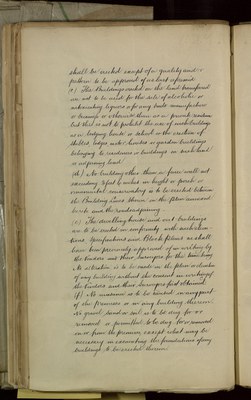 shall be erected except of a quality and
pattern to be approved of as last aforesaid
(c) The Buildings erected on the land transferred
are not to be used for the sale of alcoholic or
intoxicating liquors or for any trade manufacture
or business or otherwise than as a private residence
but this is not to prohibit the use of such buildings
as a lodging house or school or the erection of
stables lodges
belonging to residences or buildings on such land
or adjoining land
(d) No building other than a fence wall not
exceeding 4 feet 6 inches in height or porch or
ornamental conservatory is to be erected between
the Building Line shewn on the plan
and the road adjoining
(e) The dwelling houses and out buildings
are to be erected in conformity with
Specifications and Block Plans as shall
have been previously approved of in writing by
the Vendors and their Surveyor for the time being
No alteration is to be made in the plan or elevation
of any building without the consent in writing of
the Vendors and their Surveyor first obtained
(f) No
of the premises or in any building thereon
No gravel sand or soil is to be dug for or
removed or permitted to be dug for or removed
in or from the premises except what may be
necessary in excavating the foundations of any
buildings to be erected thereon